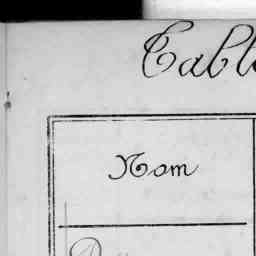 Table
Nom